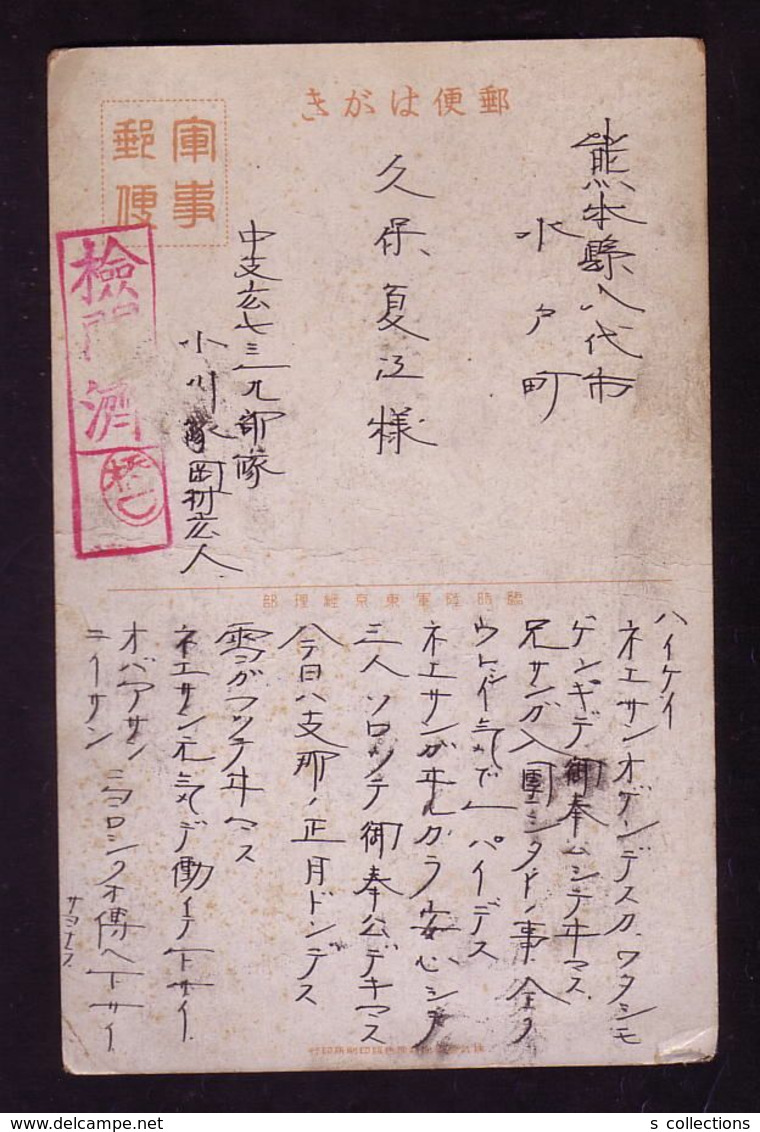 郵便はがき
軍事
郵便
檢閲濟
熊本縣八代市
水戸町
久保夏江様
中支広七三一九部隊
小川隊 岡村広人
臨時陸軍東京經理部
ハイケイ
ネエサンオゲンデスカ、ワタシモ
ゲンキデ御奉ムシテヰマス
兄サンガ入團シタトノ事全ク
ウレシイ気デ一パイデス
ネエサンガヰルカラ安心シテ
三人ソロッテ御奉公デキマス
今日ハ支那ノ正月ドンデス
雪ガフッテヰマス
ネエサン元気デ働イテ下サイ
オバアサン
ニイサン ヨロシクオ傳ヘ下サイ
サヨナラ
s collections